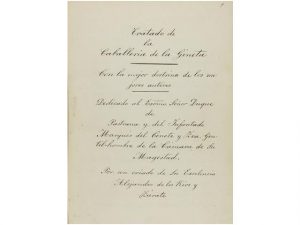 Tratado de
la
Caballeria de la Gineta
Con la mejor doctrina de los me
jores autores
Dedicado al Exmo Señor Duque
de
Pastrana y del Infantado
Marques del Cenete y Zea Gen
til-hombre de la Camara de Su
Magestad.
Por un criado de Su Excelencia
Alejandro de los Rios y
Zarate